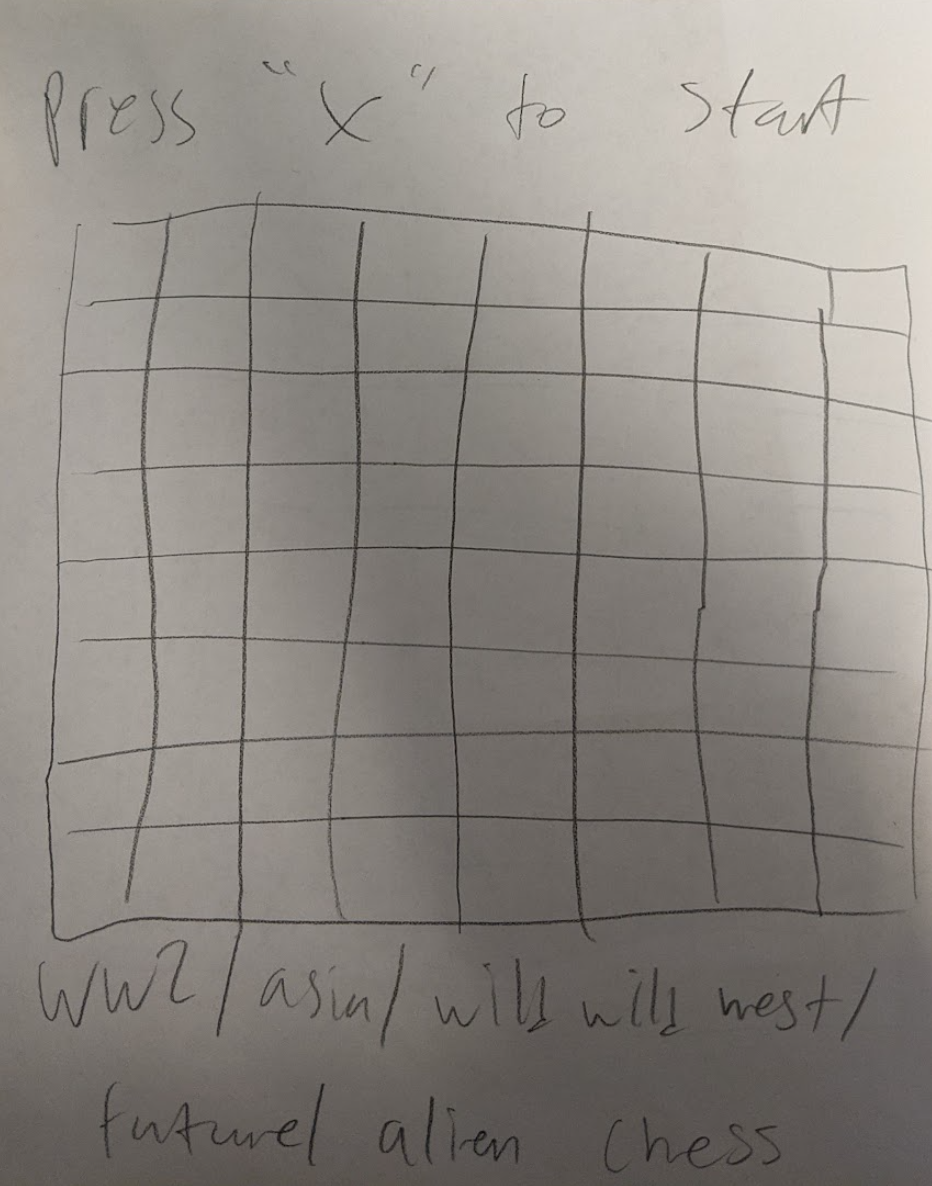 Press "X" to start
WW2/asia/wild wild west/
future/ alien chess